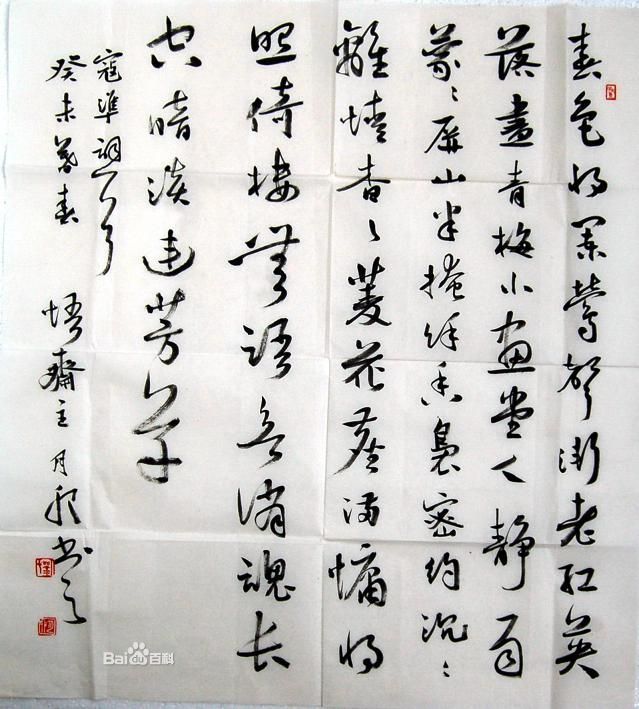 春色将阑莺声渐老红英
落盡青梅小画堂人静雨
蒙〻屏山半掩余香袅密约沉〻
離情杳〻菱花塵满慵将
照倚楼無语欲消魂长
空暗淡连芳草
寇準詞
癸未暮春 悟齋主 月 書之
Bai百科